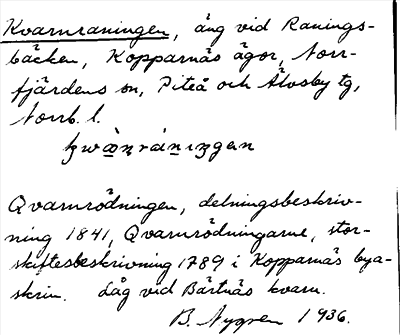 Kvarnraningen, äng vid Ranings-
bäcken, Kopparnäs ägor, Norr-
fjärdens sn, Piteå och Älvsby tg,
Norrb. l.
Qvarnrödningen, delningsbeskriv-
ning 1841, Qvarnrödningarne, stor-
skiftesbeskrivning 1789 i Kopparnäs bya-
skrin. Låg vid Bärtnäs kvarn.
B. Nygren 1936.